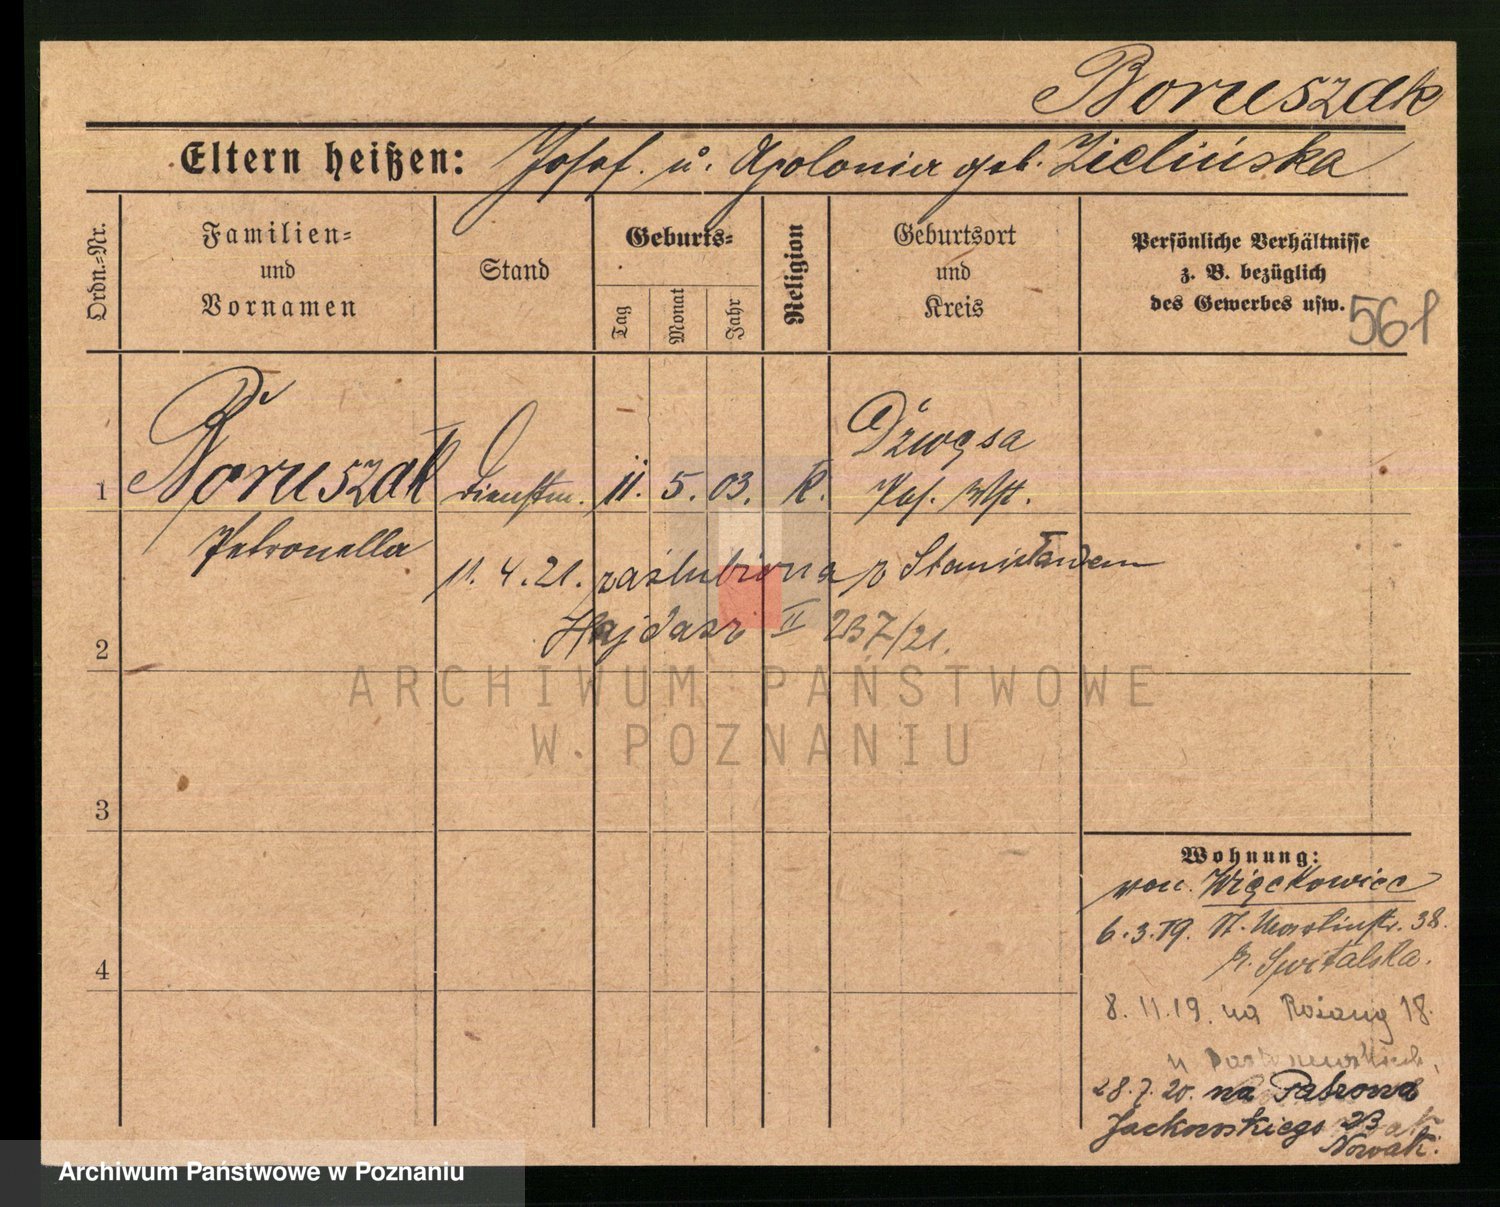 Boruszak
Eltern heißen: Josef. u. Apolonia geb. Zielińska
Ordn.-Nr.
Familien-
und
Vornamen
Stand
Geburts-
Tag
Monat
Jahr
Religion
Geburtsort
und
Kreis
Persönliche Verhältnisse
z. B. bezüglich
des Gewerbes usw.
561
1 Boruszak Dienstm. 11. 5. 03. K. Dżwęsa
Petronella Pos. Wst.
11. 4. 21. zaślubiona z Stanisławem
Hajdasz II 237/21.
2
3
4
ARCHIWUM PAŃSTWOWE
W POZNANIU
Wohnung:
von. Więckowice
6.3.19. St. Martinstr. 38.
b. Switalska.
8. 11. 19. na Różang 18.
u
28.7.20. na Patrona
Jackowskiego 23
Nowak.
Archiwum Państwowe w Poznaniu